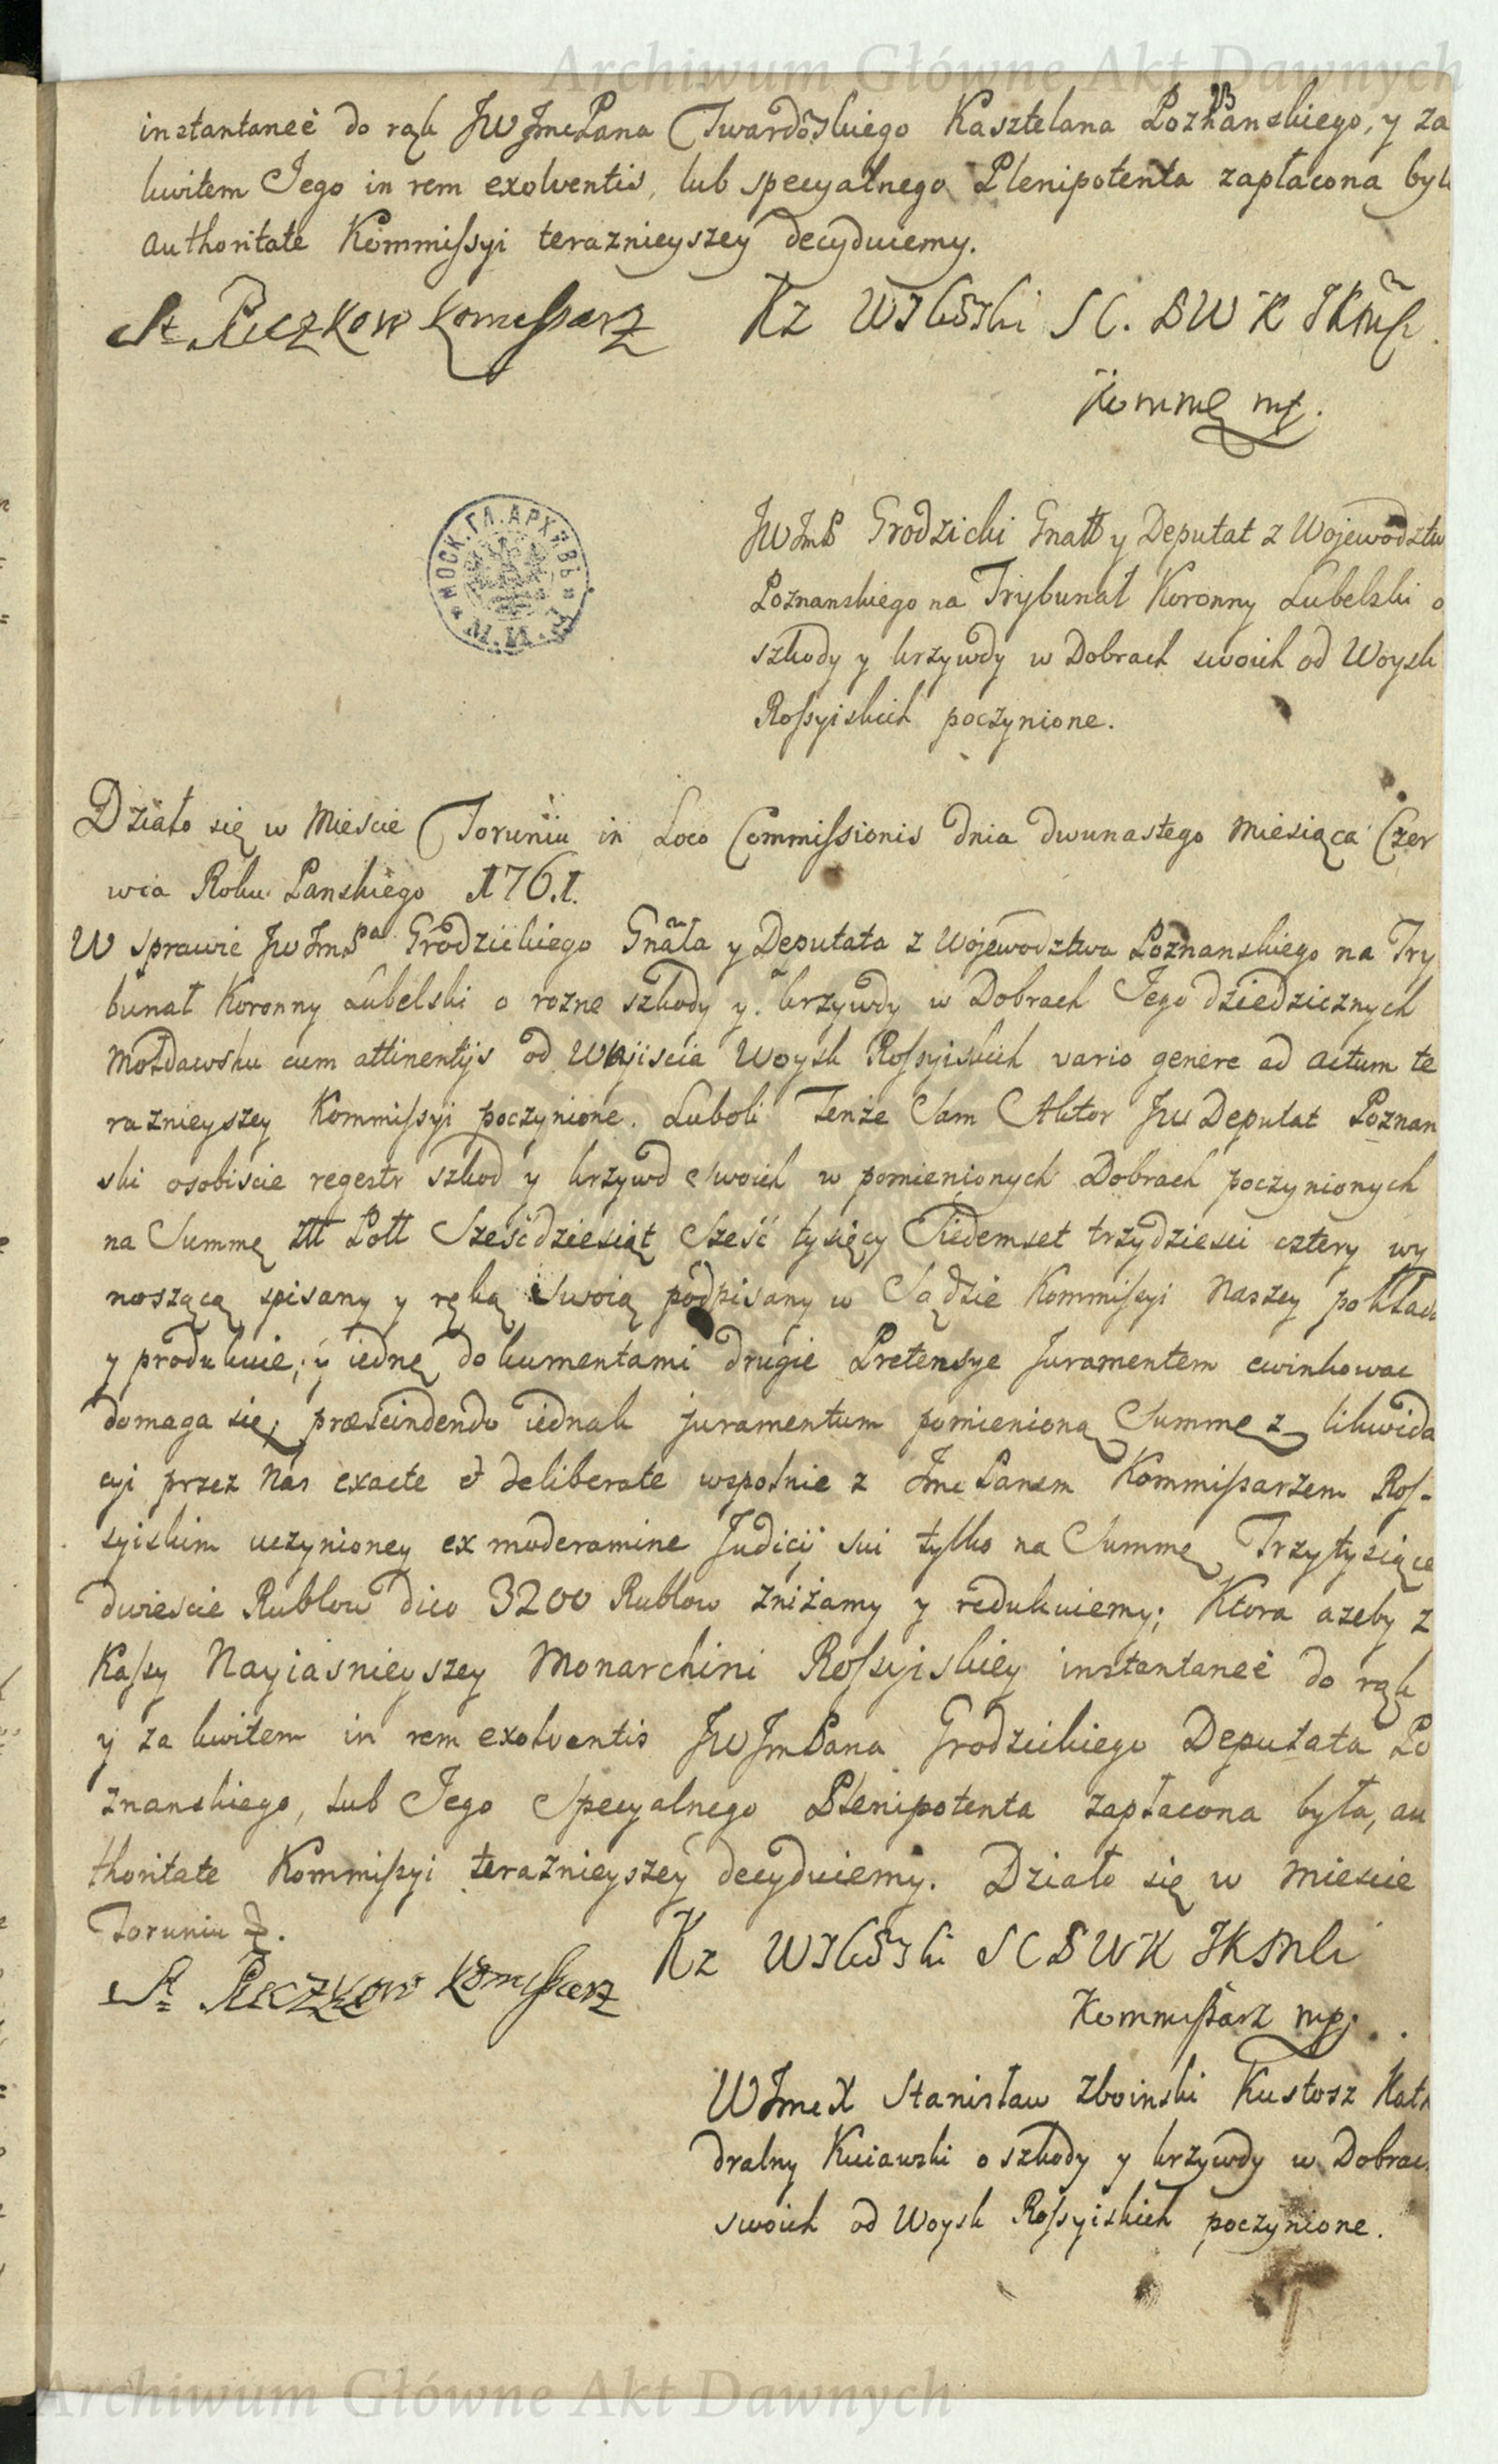 Archiwum Główne Akt Dawnych
instantaneè do rąk JW JmcPana Twardowskiego Kasztelana Poznanskiego, y za
kwitem Jego in rem exolventis, lub specyalnego Plenipotenta zapłacona była
authoritate Kommissyi teraznieyszey decyduiemy.
St Peczkow komessarz Kz
Kommę mp.
JWJmP Grodzicki Gnałł y Deputat z Wojewodztw
Poznanskiego na Trybunał Koronny Lubelski o
szkody y krzywdy w Dobrach swoich od Woysk
Rossyiskich poczynione.
МОСК. ГЛ. АРХИВЪ М. И. Д.
Działo się w Miescie Toruniu in Loco Commissionis dnia dwunastego Miesiąca Czer
wca Roku Panskiego 1761.
W sprawie JwJmPa Grodzickiego Gnała y Deputata z Wojewodztwa Poznanskiego na Try
bunał Koronny Lubelski o rozne szkody y krzywdy w Dobrach Jego dziedzicznych
cum attinentijs od Wnijscia Woysk Rossyiskich vario genere ad actum te
raznieyszey Kommissyi poczynione. Luboli Tenże Sam Aktor JW Deputat Poznan
ski osobiscie regestr szkod y krzywd swoich w pomienionych Dobrach poczynionych
na Summę Złł Poll Sześćdziesiąt Sześć tysięcy Siedemset trzydziesci cztery wy
noszącą spisany y ręką swoią podpisany w Sądzie Kommissyi Naszey pokład
y produkuie; y iedne dokumentami drugie Pretensye Juramentem ewinkowac
domaga się; præscindendo iednak juramentum pomienioną Summę z likwida
cyi przez Nas exacte et deliberate wspolnie z Jmc Panem Kommissarzem Ros-
syiskim uczynioney ex moderamine Judicij sui tylko na Summę Trzy tysiące
dwiescie Rublow dico 3200 Rublow zniżamy y redukuiemy; Ktora azeby z
Kassy Nayiasnieyszey Monarchini Rossyiskiey instantaneè do rąk
y za kwitem in rem exolventis JWJmPana Grodzickiego Deputata Po
znanskiego, lub Jego Specyalnego Plenipotenta zapłacona była, au
thoritate Kommissyi teraznieyszey decyduiemy. Działo się w Miescie
Toruniu
St Peczkow Komessarz Kz
Kommissarz mp.
WJmcX Stanisław Zboinski Kustosz Kate
dralny Kuiawski o szkody y krzywdy w Dobrac
swoich od Woysk Rossyiskich poczynione.
Archiwum Główne Akt Dawnych